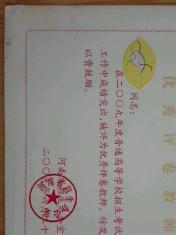 优秀评卷教师
同志：
在二〇〇九年度普通高等学校招生考试
工作中成绩突出，被评为优秀评卷教师，特发
以资鼓励。
河南省
二〇〇